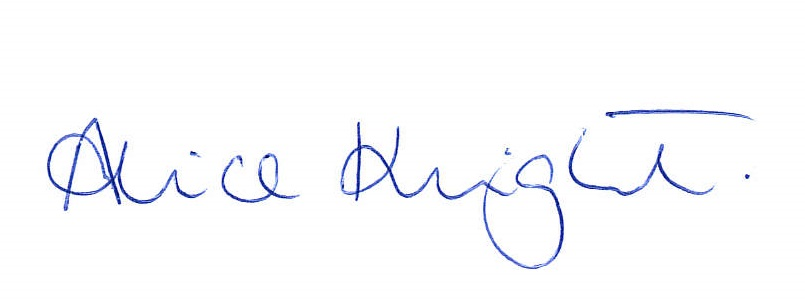 Alice Knight.